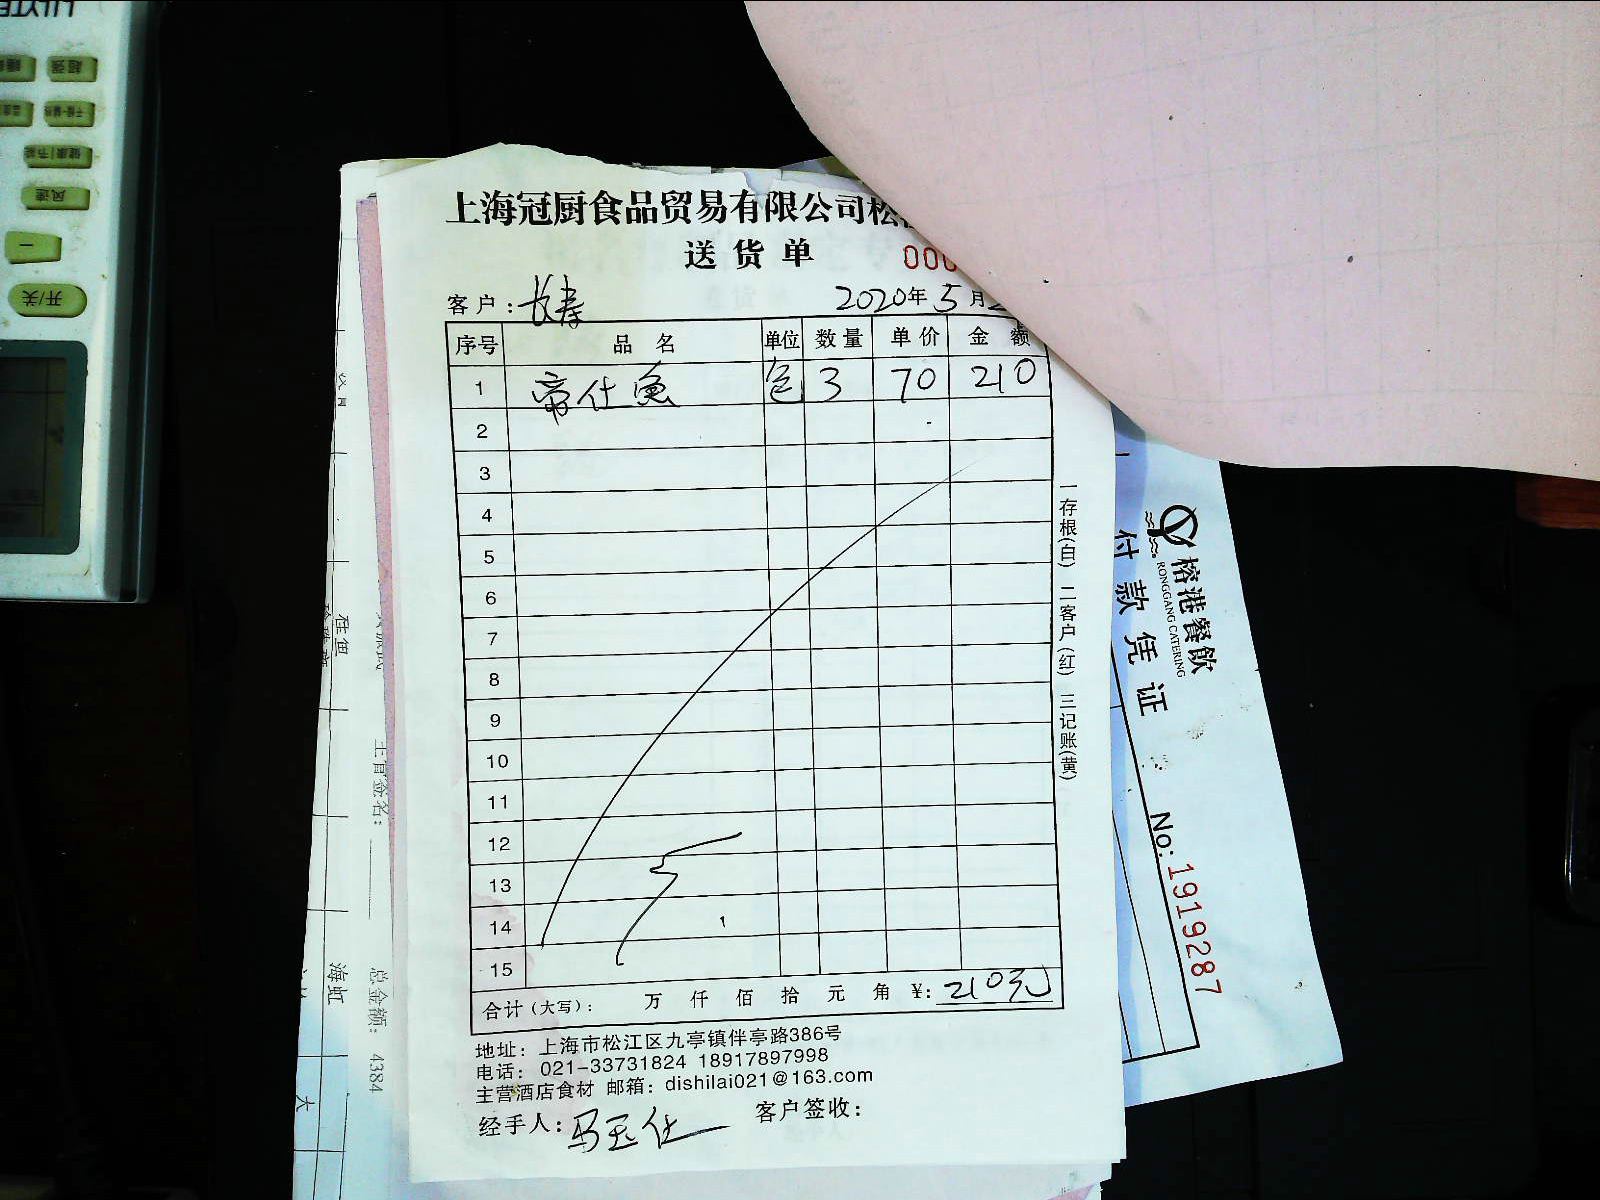 上海冠厨食品贸易有限公司松
送货单
000
客户：长寿
2020年5月
序号 品名 单位 数量 单价 金额
1 帝仕鱼 包 3 70 210
2
3
4
5
6
7
8
9
10
11
12
13
14
15
合计（大写）： 万 仟 佰 拾 元 角 ¥：210元
地址：上海市松江区九亭镇伴亭路386号
电话：021-33731824 18917897998
主营酒店食材 邮箱：dishilai021@163.com
经手人：马玉仕 客户签收：
一存根(白) 二客户(红) 三记账(黄)
榕港餐飲
RONGGANG CATERING
付款凭证
No: 1919287
桂鱼
海虹
主管签名：
总金额： 4384
大
超强
健康|节能
风速
开/关